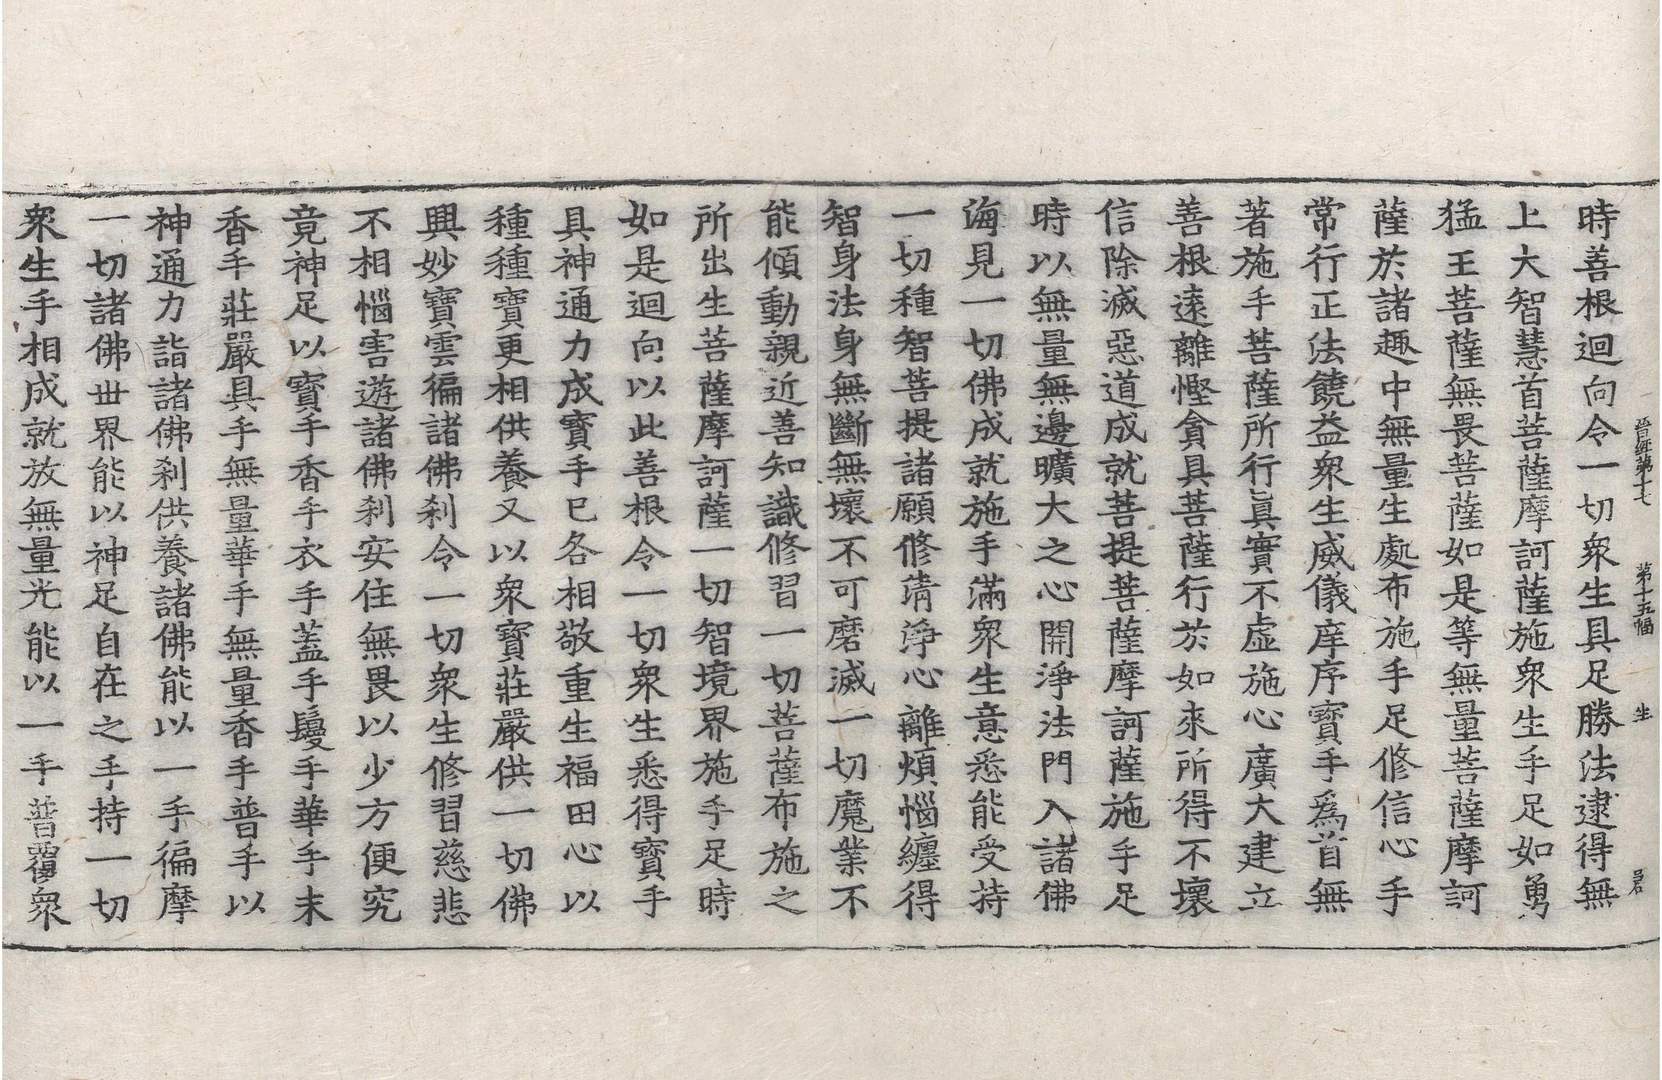 晉經第十七 第十五幅 坐 君
時善根迴向令一切衆生具足勝法逮得無
上大智慧首菩薩摩訶薩施衆生手足如勇
猛王菩薩無畏菩薩如是等無量菩薩摩訶
薩於諸趣中無量生處布施手足修信心手
常行正法饒益衆生威儀庠序寶手爲首無
著施手菩薩所行眞實不虛施心廣大建立
善根遠離慳貪具菩薩行於如來所得不壞
信除滅惡道成就菩提菩薩摩訶薩施手足
時以無量無邊曠大之心開淨法門入諸佛
海見一切佛成就施手滿衆生意悉能受持
一切種智菩提諸願修清淨心離煩惱纏得
智身法身無斷無壞不可磨滅一切魔業不
能傾動親近善知識修習一切菩薩布施之
所出生菩薩摩訶薩一切智境界施手足時
如是迴向以此善根令一切衆生悉得寶手
具神通力成寶手已各相敬重生福田心以
種種寶更相供養又以衆寶莊嚴供一切佛
興妙寶雲徧諸佛刹令一切衆生修習慈悲
不相惱害遊諸佛刹安住無畏以少方便究
竟神足以寶手香手衣手蓋手鬘手華手末
香手莊嚴具手無量華手無量香手普手以
神通力詣諸佛刹供養諸佛能以一手徧摩
一切諸佛世界能以神足自在之手持一切
衆生手相成就放無量光能以一手普覆衆